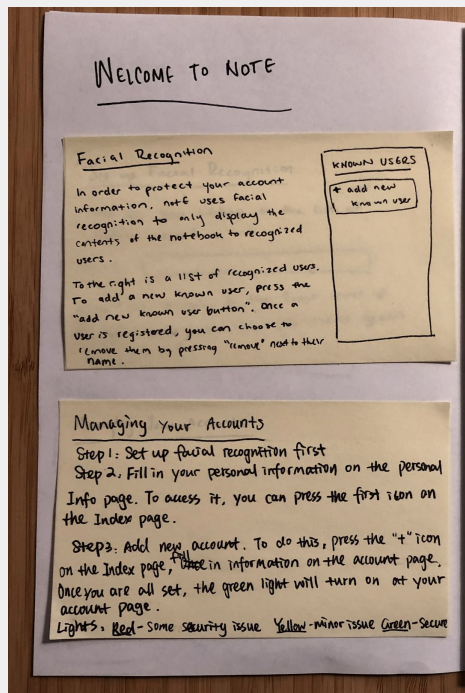 WELCOME TO NOTE
Facial Recognition
In order to protect your account
information, note uses facial
recognition to only display the
contents of the notebook to recognized
users.
To the right is a list of recognized users.
To add a new known user, press the
"add new known user button". Once a
user is registered, you can choose to
remove them by pressing "remove" next to their
name.
KNOWN USERS
+ add new
known user
Managing Your Accounts
Step 1: Set up facial recognition first
Step 2, Fill in your personal information on the personal
Info page. To acess it, you can press the first icon on
the Index page.
Step3: Add new account. To do this, press the "+" icon
on the Index page, fill in information on the account page.
Once you are all set, the green light will turn on at your
account page.
Lights, Red-Some security issue Yellow-minor issue Green-Secure